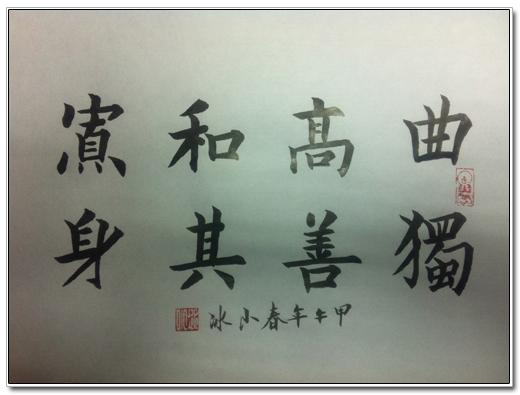 曲高和寡
獨善其身
甲午年春小冰